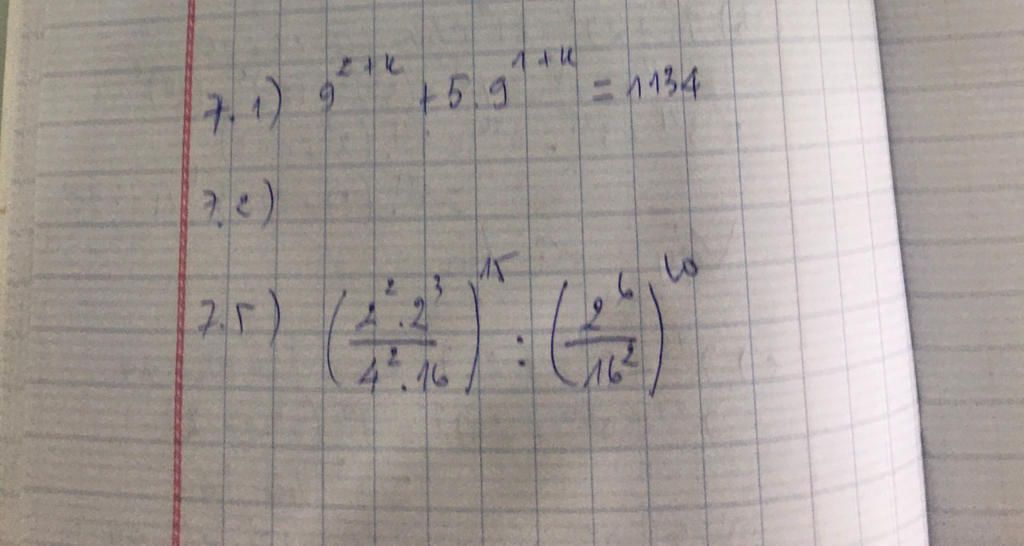 7.1) 9^{2+x} + 5.9^{1+x} = 1134
7.2)
7.5) (\frac{2^2 . 2^3}{4^2 . 16})^{15} : (\frac{2^6}{16^2})^{10}